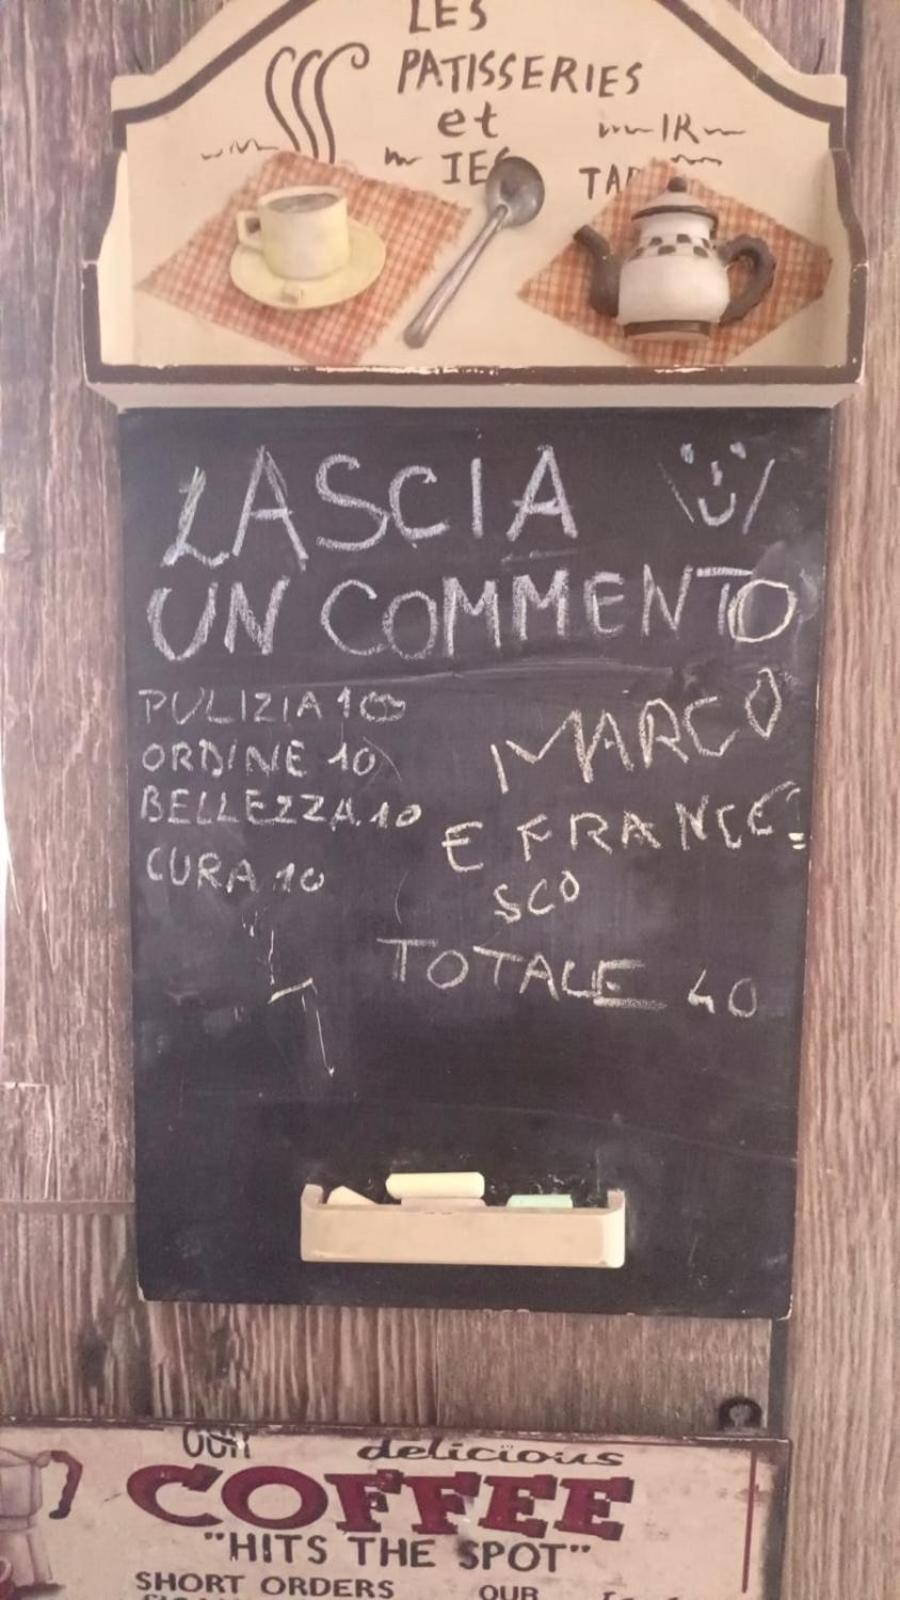 LES
PATISSERIES
et
IR
LASCIA
UN COMMENTO
PULIZIA 10
ORDINE 10
BELLEZZA 10
CURA 10
MARCO
E FRANCE
SCO
TOTALE 40
delicious
COFFEE
"HITS THE SPOT"
SHORT ORDERS
OUR